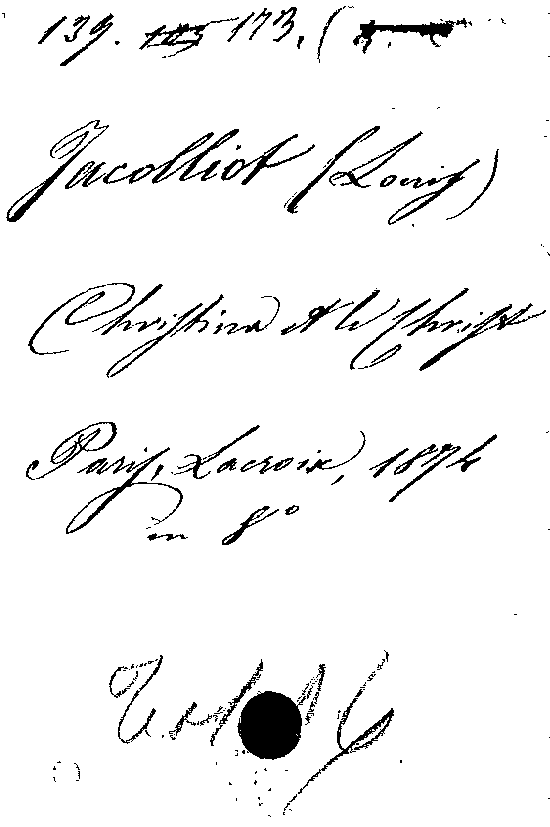 139. 173. (
Jacolliot (Louis)
Christna et le Christ
Paris, Lacroix, 1874
in 8°